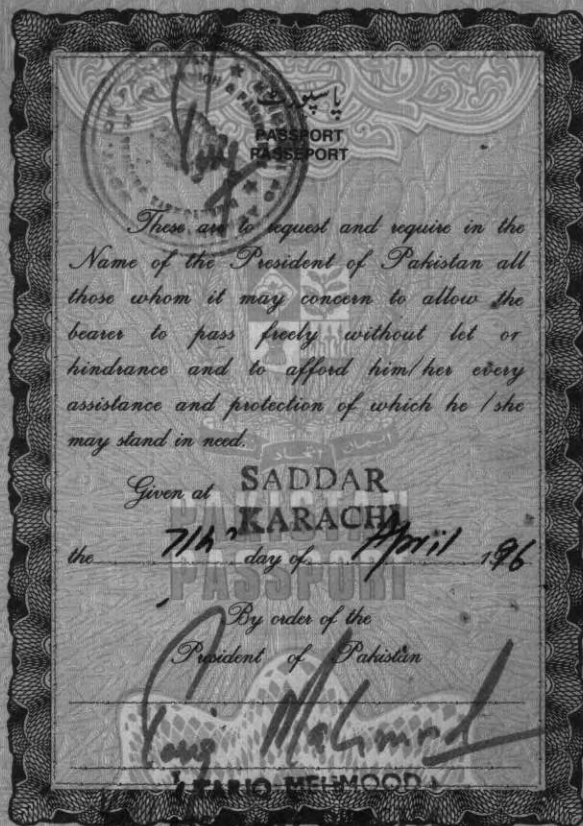 پاسپورٹ
PASSPORT
PASSEPORT
These are to request and require in the
Name of the President of Pakistan all
those whom it may concern to allow the
bearer to pass freely without let or
hindrance and to afford him/her every
assistance and protection of which he/she
may stand in need.
Given at SADDAR
KARACHI
the 7th day of April 1996
PAKISTAN
PASSPORT
By order of the
President of Pakistan
Tariq Mahmood
(TARIQ MEHMOOD)